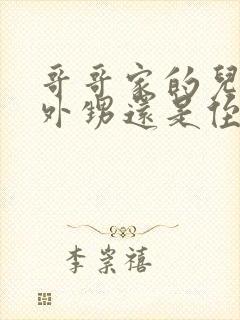 哥哥家的兒
外甥還是侄
李崇禧